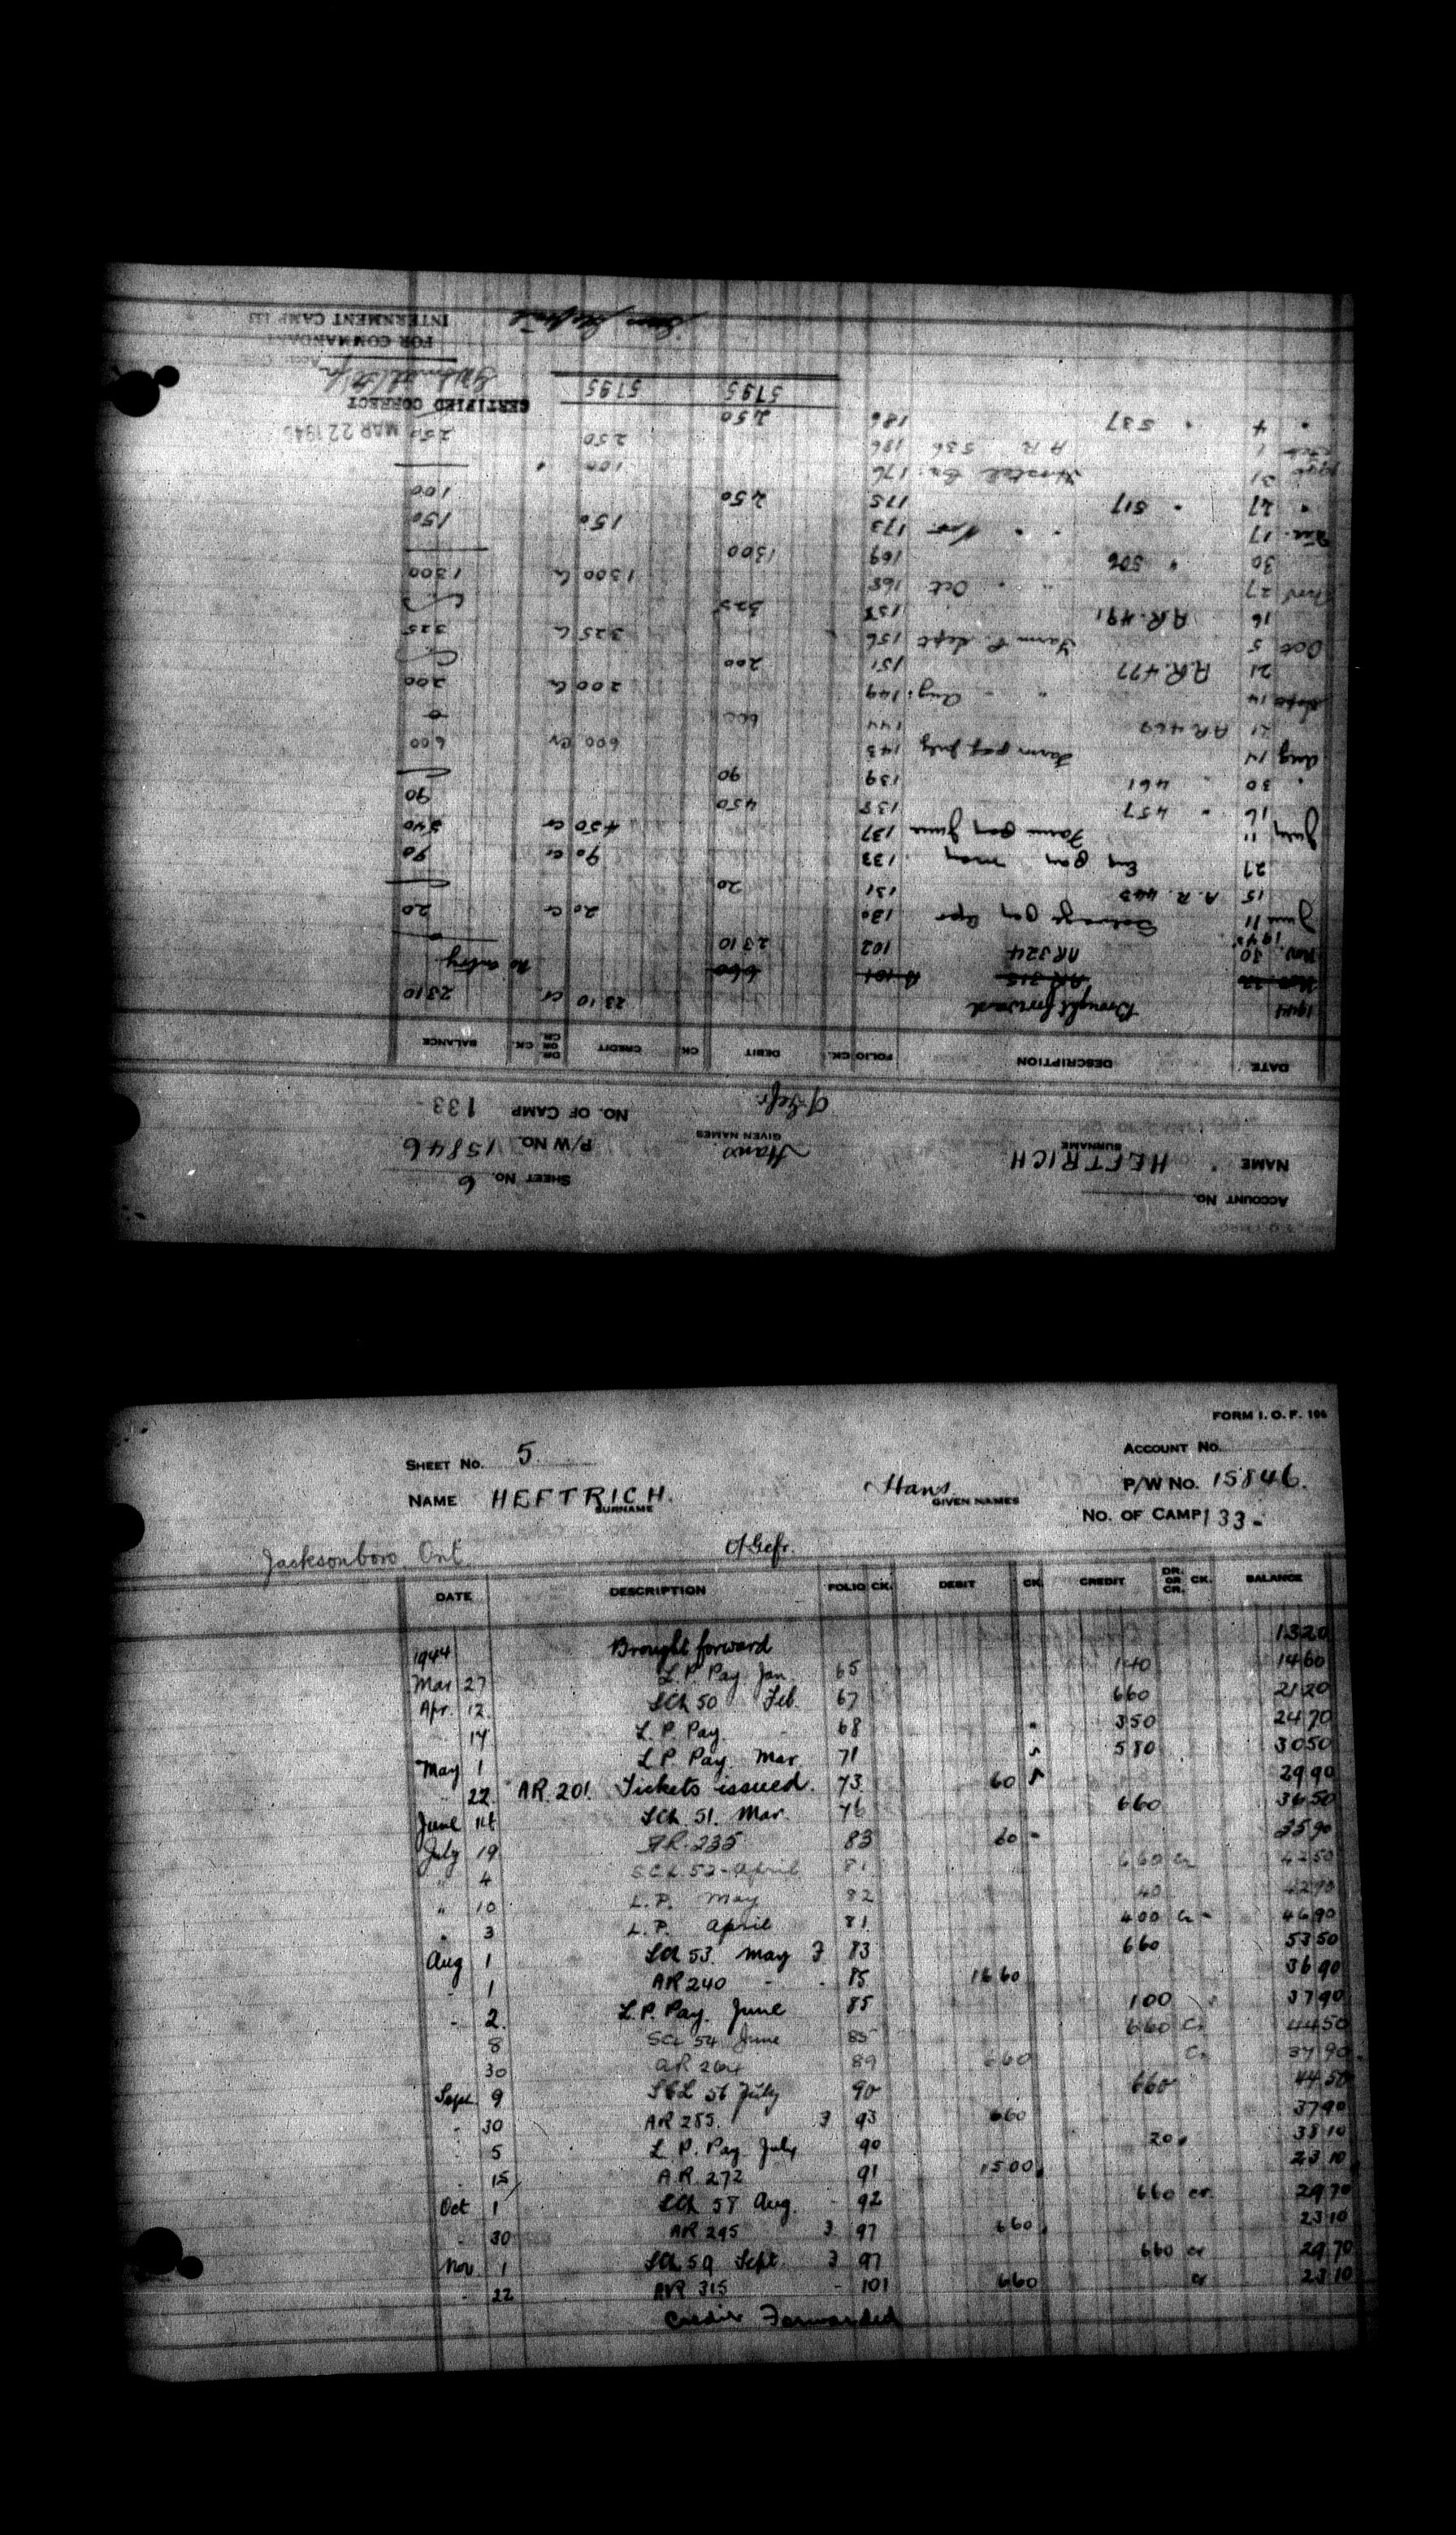 ACCOUNT No.
SHEET No. 6
NAME HEFTRICH Hans P/W No. 15846
SURNAME GIVEN NAMES
O/Gefr. NO. OF CAMP 133-
DATE DESCRIPTION FOLIO CK. DEBIT CK. CREDIT DR. OR CR. CK. BALANCE
1944 Brought forward 2310 cr. 2310
AR 315 101 660 No entry
Nov. 30 AR 324 102 2310
1945
June 11 Salvage Pay Apr 130 20 cr 20
15 A.R. 443 131 20
27 Pay May 133 90 cr 90
July 11 Farm Pay June 137 450 cr 540
16 " 457 138 450 90
" 30 " 461 139 90
Aug 14 Farm pay July 143 600 cr 600
21 AR 469 144 600 0
Sept 14 " " Aug. 149 200 200
21 A.R. 477 151 200
Oct 5 Farm P. Sept 156 325 325
16 A.R. 491 158 325
Nov 27 " " Oct 168 1300 1300
30 " 506 169 1300
Dec. 17 " " Nov. 173 150 150
" 27 " 517 175 250 100
1946 31 176 100
1 A R 536 186 250 250
" 4 " 537 186 250
5195 5195
MAR 22 1946
CERTIFIED CORRECT
FOR COMMANDANT
INTERNMENT CAMP 133
FORM I. O. F. 106
SHEET No. 5 ACCOUNT No.
NAME HEFTRICH. Hans P/W No. 15846.
SURNAME GIVEN NAMES
No. OF CAMP 133-
Jacksonboro Ont. O/Gefr.
DATE DESCRIPTION FOLIO CK. DEBIT CK. CREDIT DR. OR CR. CK. BALANCE
1944 Brought forward 1320
Mar 27 L.P. Pay Jan. 65 140 1460
Apr. 12 SCL 50 Feb. 67 660 2120
14 L.P. Pay 68 350 2470
May 1 L.P. Pay Mar. 71 580 3050
22. AR. 201. Tickets issued. 73 60 2990
June 14 SCL 51. Mar. 76 660 3650
July 19 A.R. 235 83 60 3590
" 4 SCL 52 - April 81 660 cr 4250
" 10 L.P. May 82 40 4290
" 3 L.P. April 81 400 cr 4690
Aug 1 SCL 53. May 83 660 5350
1 AR 240 85 1660 3690
2. L.P. Pay. June 85 100 3790
8 SCL 54 June 85 660 Cr 4450
30 AR 264 89 660 Cr 3790
Sept. 9 SCL 56 July 90 660 4450
30 AR 285. 93 660 3790
5 L.P. Pay July 90 20 3810
15 A.R. 272 91 1500 2310
Oct 1 SCL 58 Aug. 92 660 cr. 2970
30 AR 295 97 660 2310
Nov. 1 SCL 59 Sept. 97 660 cr 2970
22 AR 315 101 660 cr 2310
Forwarded